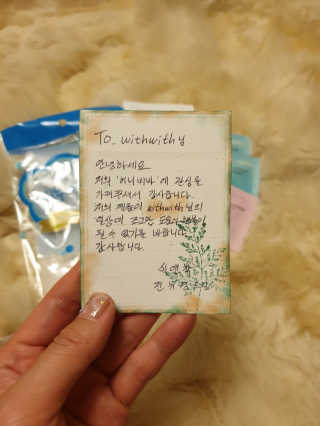 To. withwithy
안녕하세요
저희 '허니비바'에 관심을
가져주셔서 감사합니다.
저희 제품이 withwithy님의
일상에 조그만 도움이
될 수 있기를 바랍니다.
감사합니다.